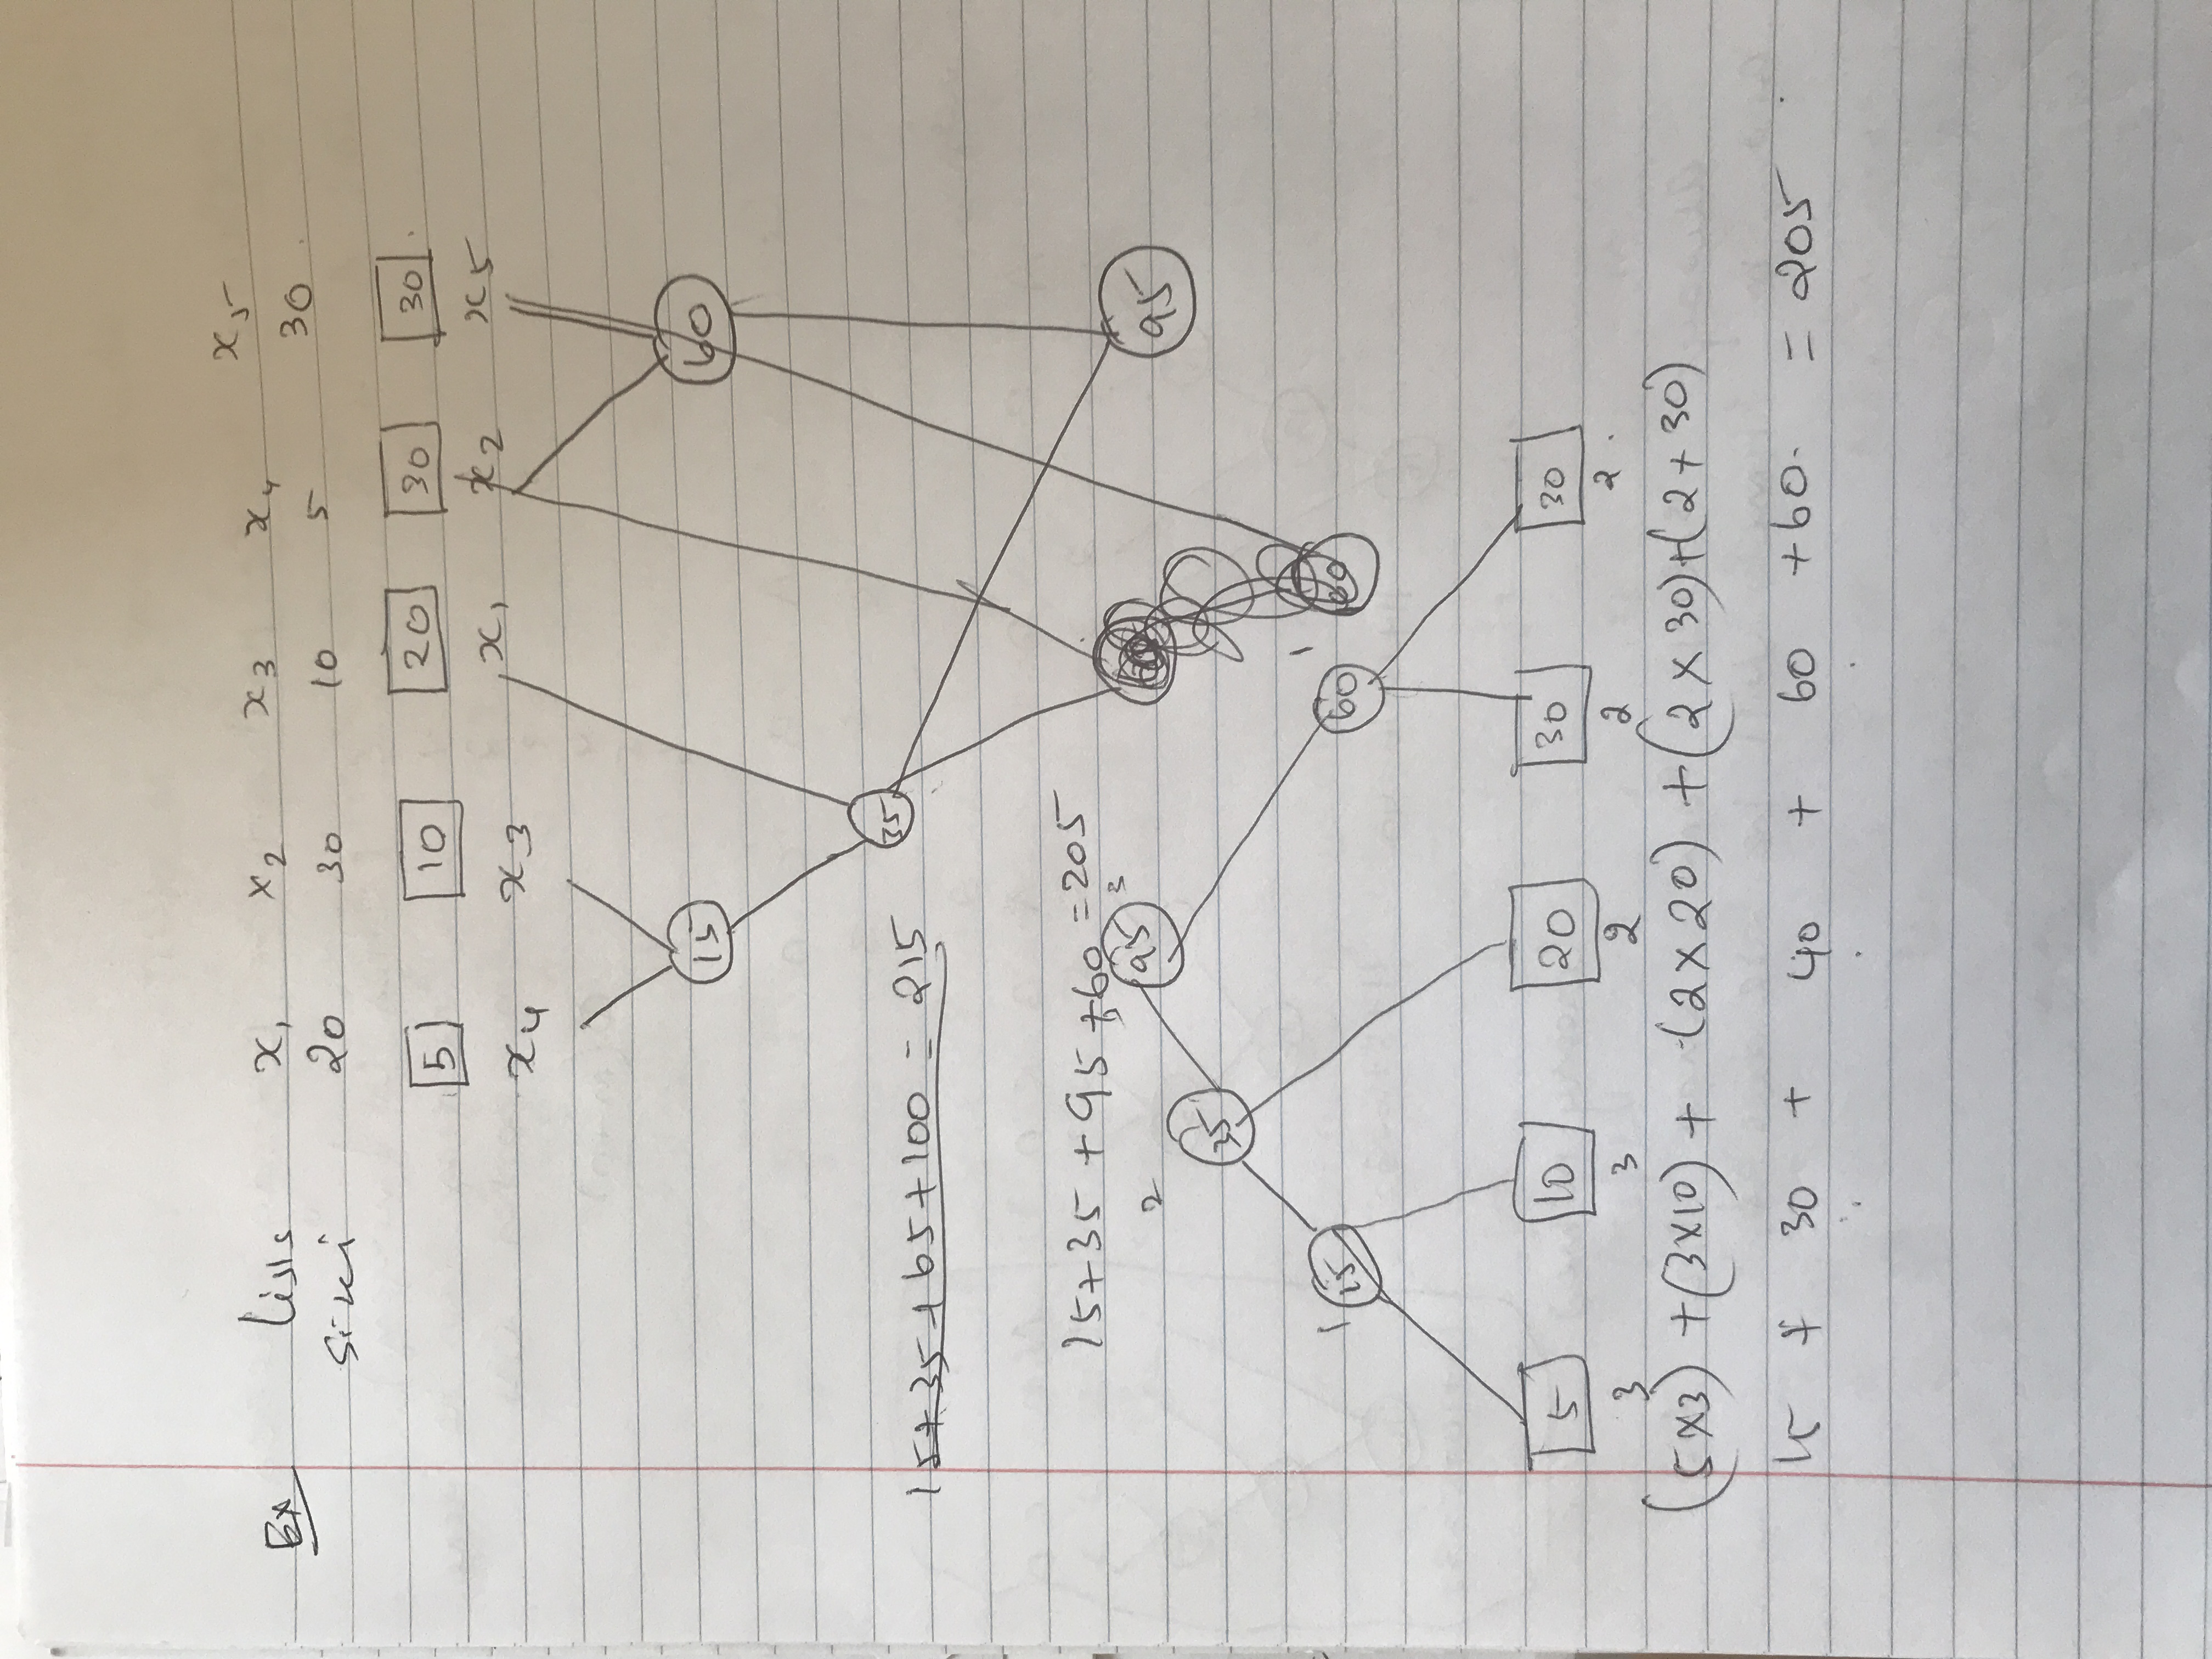 Ex Lists x₁ x₂ x₃ x₄ x₅
20 30 10 5 30
5 10 20 30 30
x₄ x₃ x₁ x₂ x₅
15 60
35
15+35+65+100 = 215
15+35+95+60 = 205
95 3 95
2 35
1 15 60 1
5 10 20 30 30
3 3 2 2 2.
(5×3) + (3×10) + (2×20) + (2×30)+(2+30)
15 + 30 + 40 + 60 +60. = 205